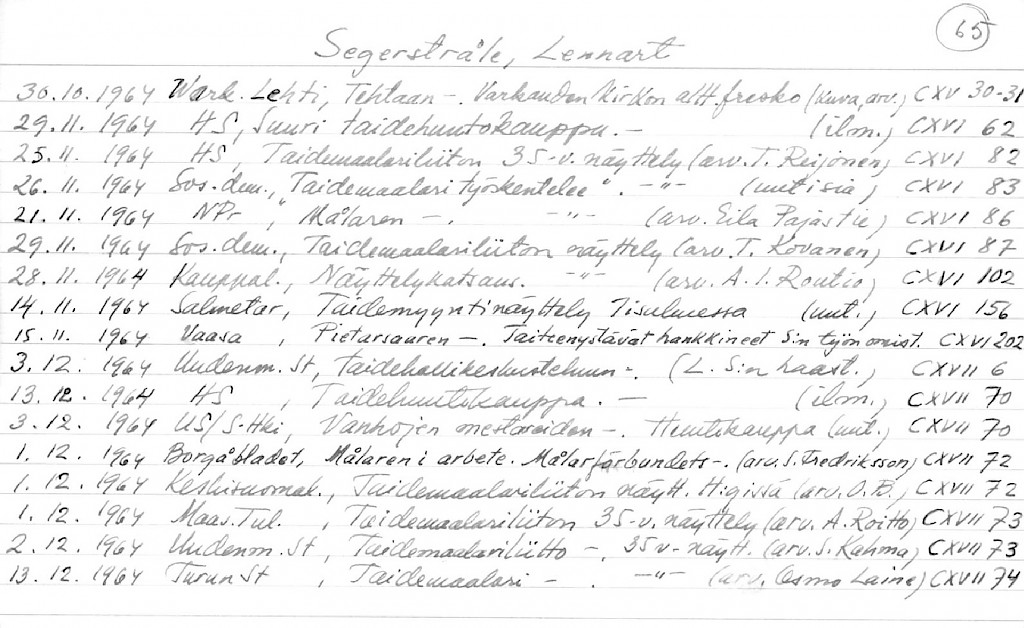 65
Segerstråle, Lennart
30.10.1964 Wark. Lehti, Tehtaan -. Varkauden kirkon altt. fresko (kuva, arv.) CXV 30-31
29.11.1964 HS, Suuri taidehuutokauppa. - (ilm.) CXVI 62
25.11.1964 HS, Taidemaalariliiton 35-v. näyttely (arv. T. Reijonen) CXVI 82
26.11.1964 Sos.dem., "Taidemaalari työskentelee". -"- (uutisia) CXVI 83
21.11.1964 NPr, Målaren -. -"- (arv. Eila Pajastie) CXVI 86
29.11.1964 Sos.dem., Taidemaalariliiton näyttely (arv. T. Kovanen) CXVI 87
28.11.1964 Kauppal., Näyttelykatsaus. -"- (arv. A.I. Routio) CXVI 102
14.11.1964 Salmetar, Taidemyyntinäyttely Iisalmessa (uut.) CXVI 156
15.11.1964 Vaasa, Pietarsaaren -. Taiteenystävät hankkineet S:n työn omist. CXVI 202
3.12.1964 Uudenm. St, Taidehallikeskusteluun -. (L. S:n haast.) CXVII 6
13.12.1964 HS, Taidehuutokauppa. - (ilm.) CXVII 70
3.12.1964 US/S-Hki, Vanhojen mestareiden -. Huutokauppa (uut.) CXVII 70
1.12.1964 Borgåbladet, Målaren i arbete. Målarförbundets -. (arv. S. Fredriksson) CXVII 72
1.12.1964 Keskisuomal., Taidemaalariliiton näytt. H:gissä (arv. O.B.) CXVII 72
1.12.1964 Maas.Tul., Taidemaalariliiton 35-v. näyttely (arv. A. Roitto) CXVII 73
2.12.1964 Uudenm. St, Taidemaalariliitto -. 35 v- näytt. (arv. S. Kahma) CXVII 73
13.12.1964 Turun St, Taidemaalari - . -"- (arv. Osmo Laine) CXVII 74